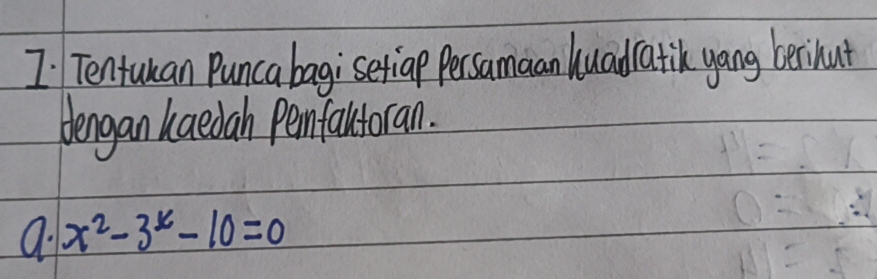 1. Tentukan Punca bagi setiap Persamaan kuadratik yang berikut
dengan kaedah Pemfaktoran.
a. x² - 3x - 10 = 0